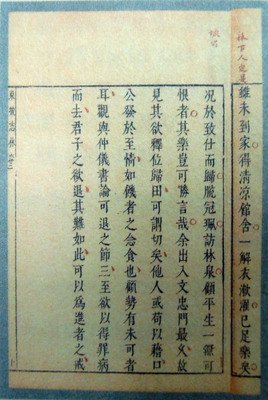 雖未到家得清凉館舍一解衣漱濯已足樂矣
況於致仕而歸脫冠珮訪林泉顧平生一無可
恨者其樂豈可勝言哉余出入文忠門最久故
見其欲釋位歸田可謂切矣他人或苟以藉口
公發於至情如饑者之念食也顧勢有未可者
耳觀與仲儀書論可退之節三至欲以得罪病
而去君子之欲退其難如此可以為進者之戒
東坡志林